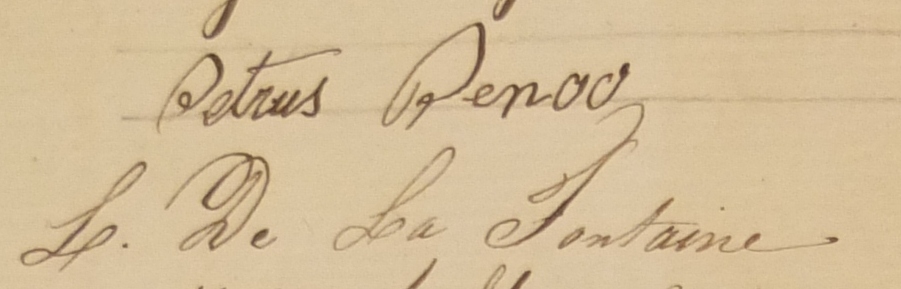 Petrus Renoo
L. De La Fontaine